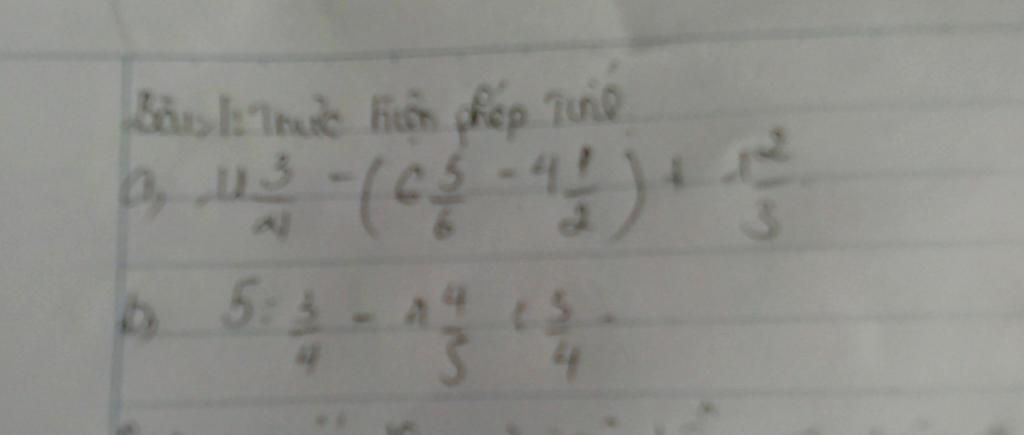 Bài 1: Thực hiện phép tính
a, 11 3/4 - (6 5/6 - 4 1/2) + 1 2/3
b, 5 : 3/4 - 1 4/5 : 3/4